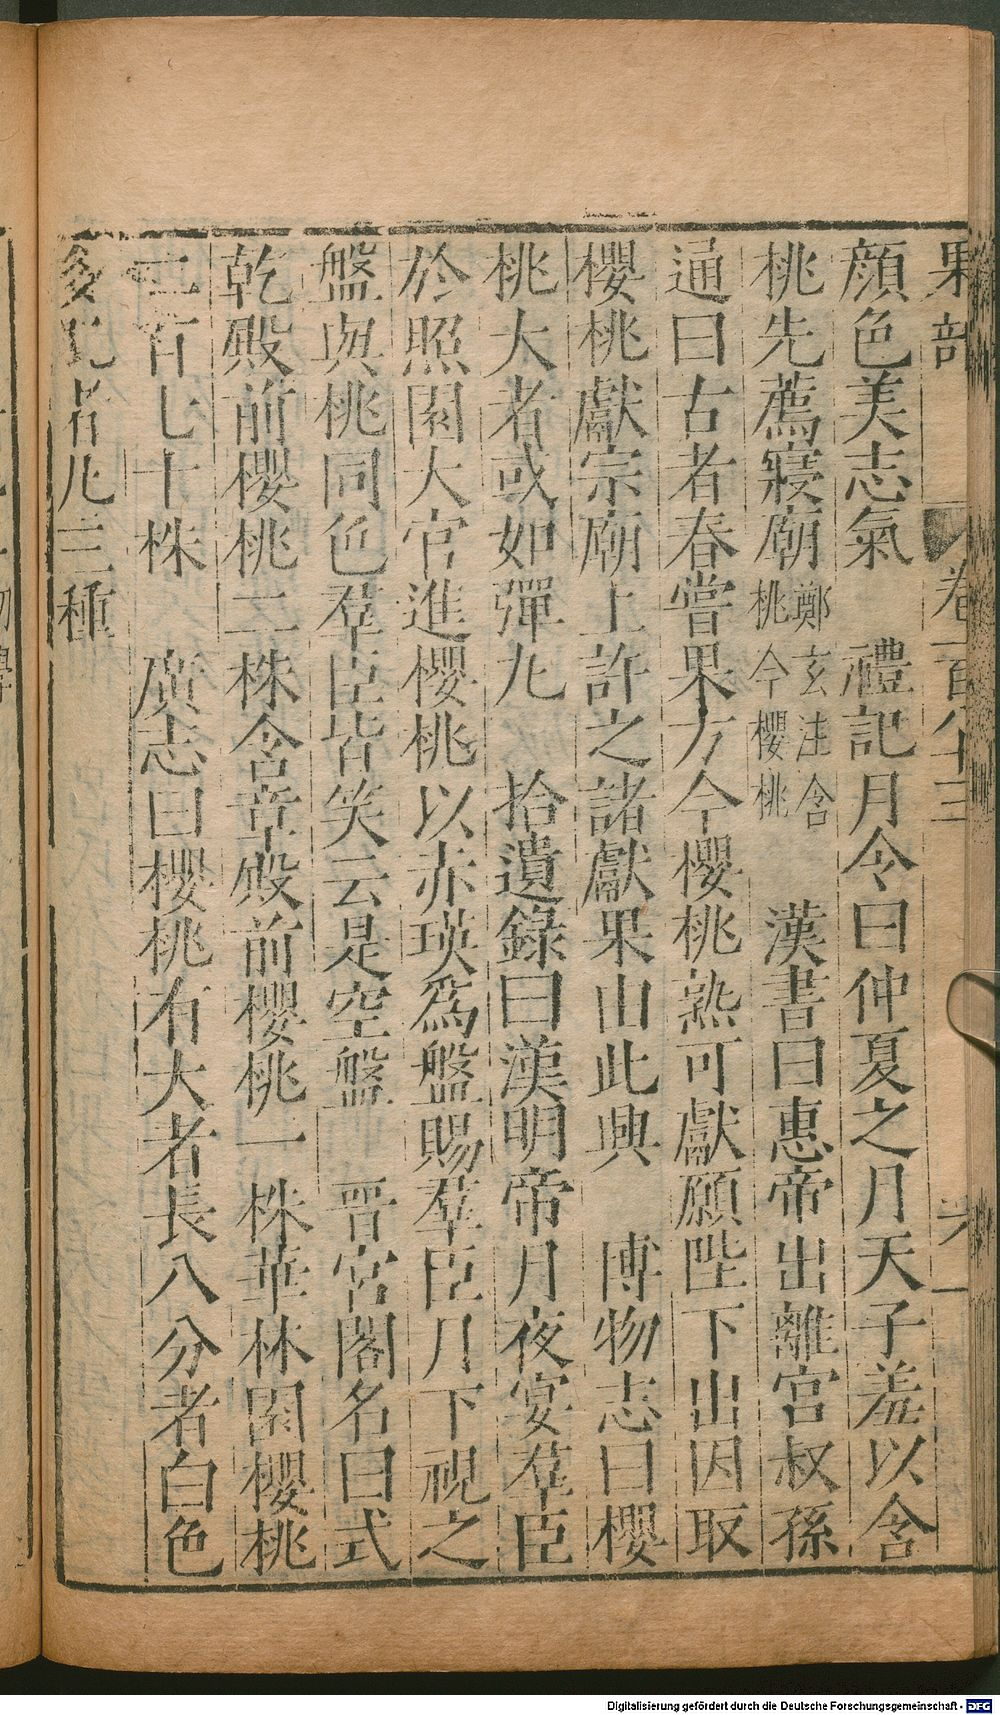 果部 卷一百八十三 六
顔色美志氣 禮記月令曰仲夏之月天子羞以含
桃先薦寢廟 鄭玄注含桃今櫻桃 漢書曰惠帝出離宮叔孫
通曰古者春嘗果方今櫻桃熟可獻願陛下出因取
櫻桃獻宗廟上許之諸獻果由此興 博物志曰櫻
桃大者或如彈丸 拾遺錄曰漢明帝月夜宴羣臣
於照園大官進櫻桃以赤瑛爲盤賜羣臣月下視之
盤與桃同色羣臣皆笑云是空盤 晋宮閣名曰式
乾殿前櫻桃二株含章殿前櫻桃一株華林園櫻桃
二百七十株 廣志曰櫻桃有大者長八分者白色
多肌者凡三種
Digitalisierung gefördert durch die Deutsche Forschungsgemeinschaft - DFG